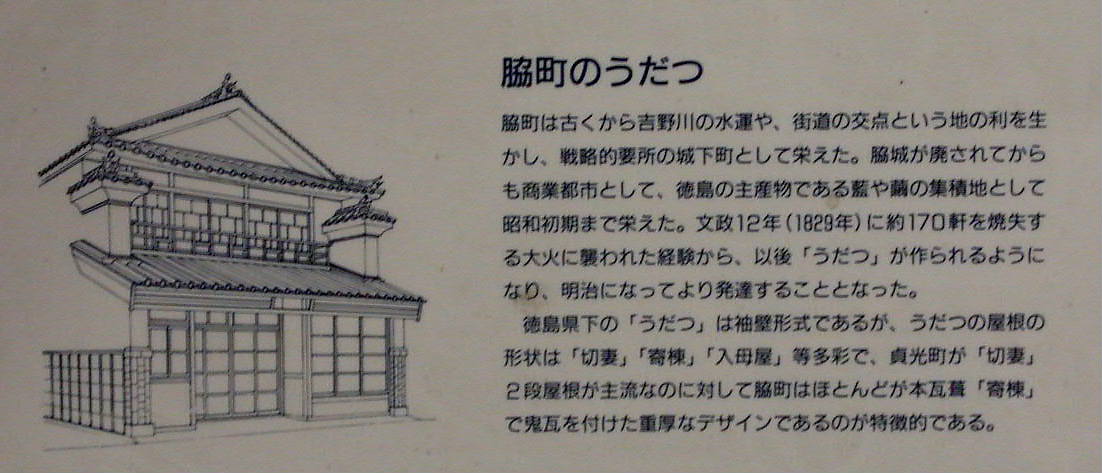 脇町のうだつ
脇町は古くから吉野川の水運や、街道の交点という地の利を生
かし、戦略的要所の城下町として栄えた。脇城が廃されてから
も商業都市として、徳島の主産物である藍や繭の集積地として
昭和初期まで栄えた。文政12年(1829年)に約170軒を焼失す
る大火に襲われた経験から、以後「うだつ」が作られるように
なり、明治になってより発達することとなった。
徳島県下の「うだつ」は袖壁形式であるが、うだつの屋根の
形状は「切妻」「寄棟」「入母屋」等多彩で、貞光町が「切妻」
2段屋根が主流なのに対して脇町はほとんどが本瓦葺「寄棟」
で鬼瓦を付けた重厚なデザインであるのが特徴的である。